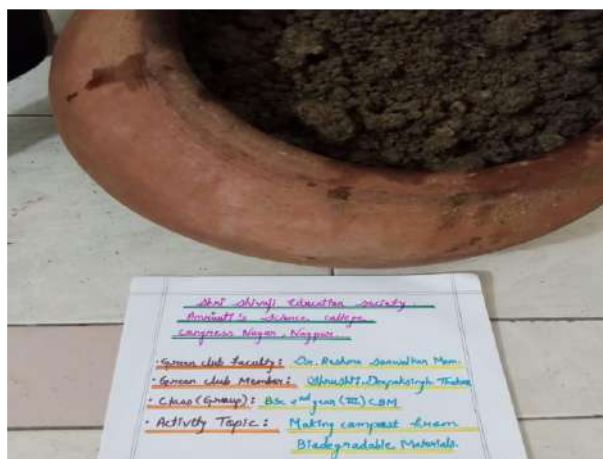 Shri Shivaji Education Society
Amravati's Science college
Congress Nagar, Nagpur.
• Green club faculty: Dr. Reshma Mam.
• Green club Member: Deepaksingh
• Class (Group): BSc 2nd year (III) CBM
• Activity Topic: Making compost from
Biodegradable Materials.